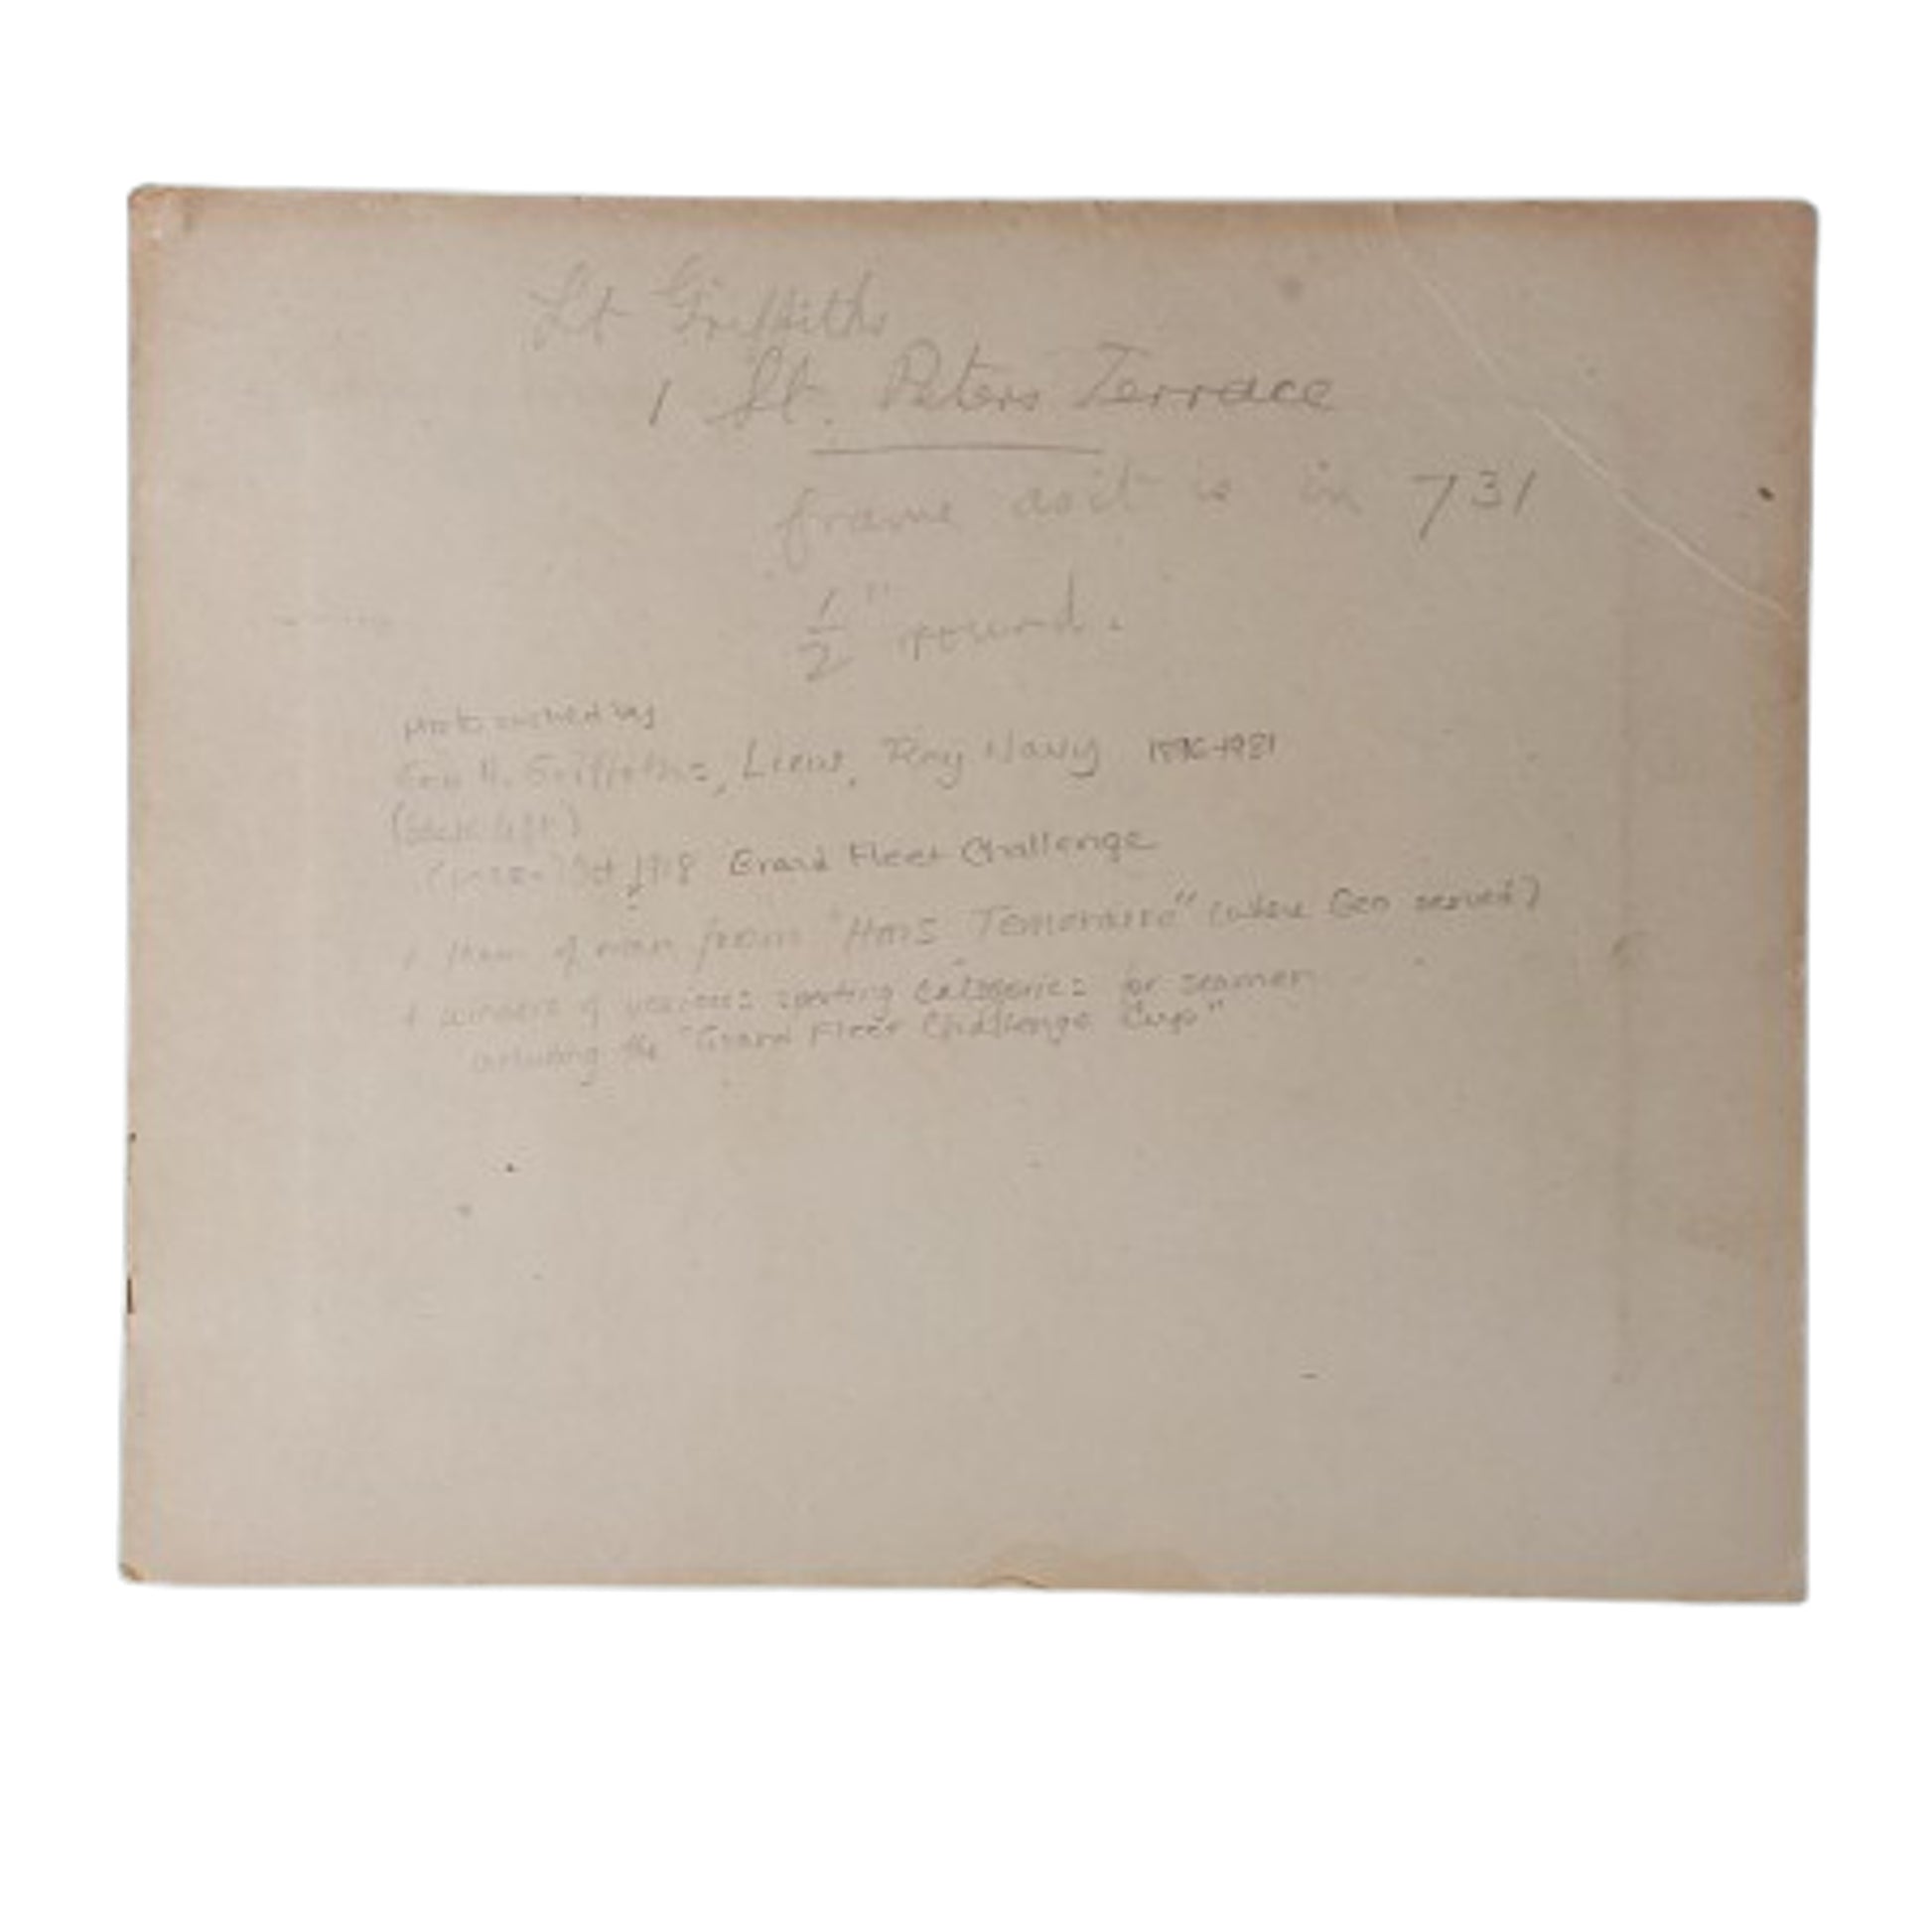 Lt Griffiths
1 St. Peters Terrace
frame as it is in 731
1/2" round.
Geo H. Griffiths, Lieut, Roy Navy 1896-1981
(back left)
Oct 1918 Grand Fleet Challenge
team of men from "HMS Temeraire" (where Geo served)
+ winners of various sporting categories for seamen
including the "Grand Fleet Challenge Cup"